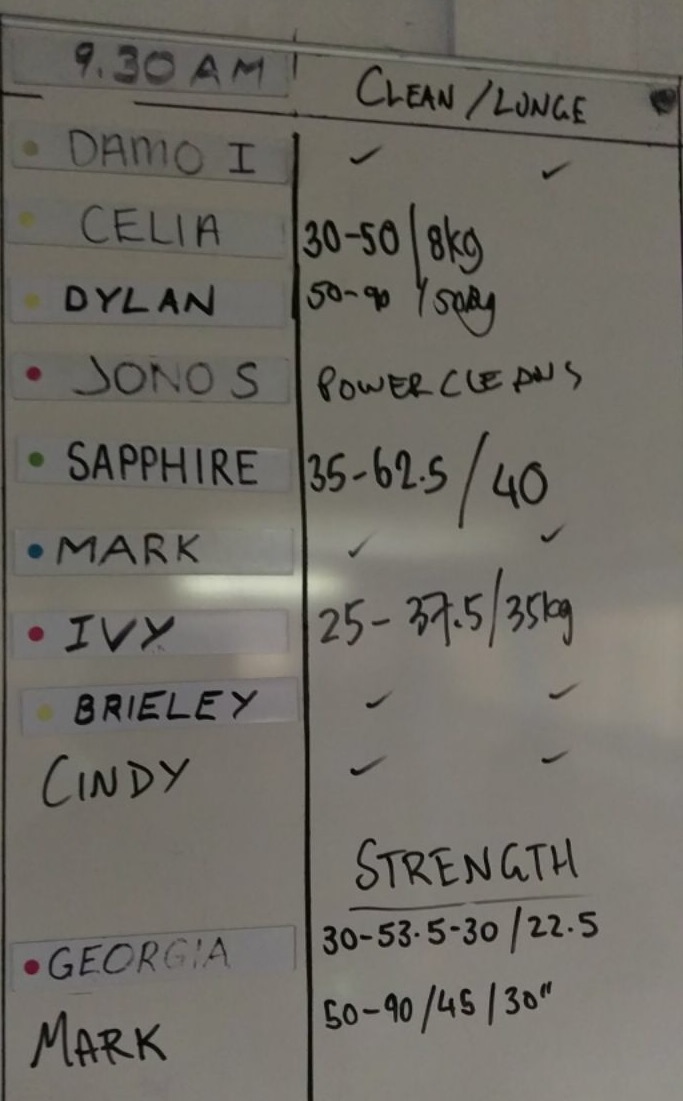 9.30 AM CLEAN/LUNGE
DAMO I ✓ ✓
CELIA 30-50/8kg
DYLAN 50-90/50kg
JONO S POWER CLEANS
SAPPHIRE 35-62.5/40
MARK ✓ ✓
IVY 25-37.5/35kg
BRIELEY ✓ ✓
CINDY ✓ ✓
STRENGTH
GEORGIA 30-53.5-30/22.5
MARK 50-90/45/30"